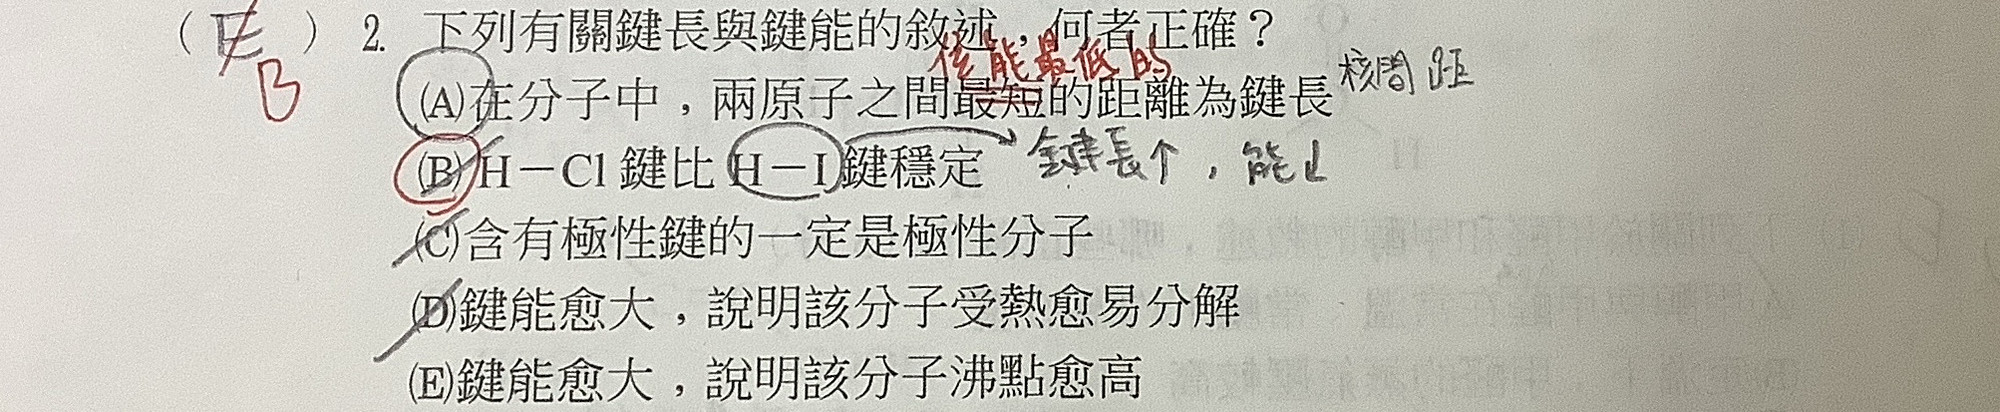 (E) 2. 下列有關鍵長與鍵能的敘述，何者正確？
B
位能最低的
(A)在分子中，兩原子之間最短的距離為鍵長 核間距
(B) H－Cl 鍵比 H－I 鍵穩定 鍵長↑，能↓
(C)含有極性鍵的一定是極性分子
(D)鍵能愈大，說明該分子受熱愈易分解
(E)鍵能愈大，說明該分子沸點愈高